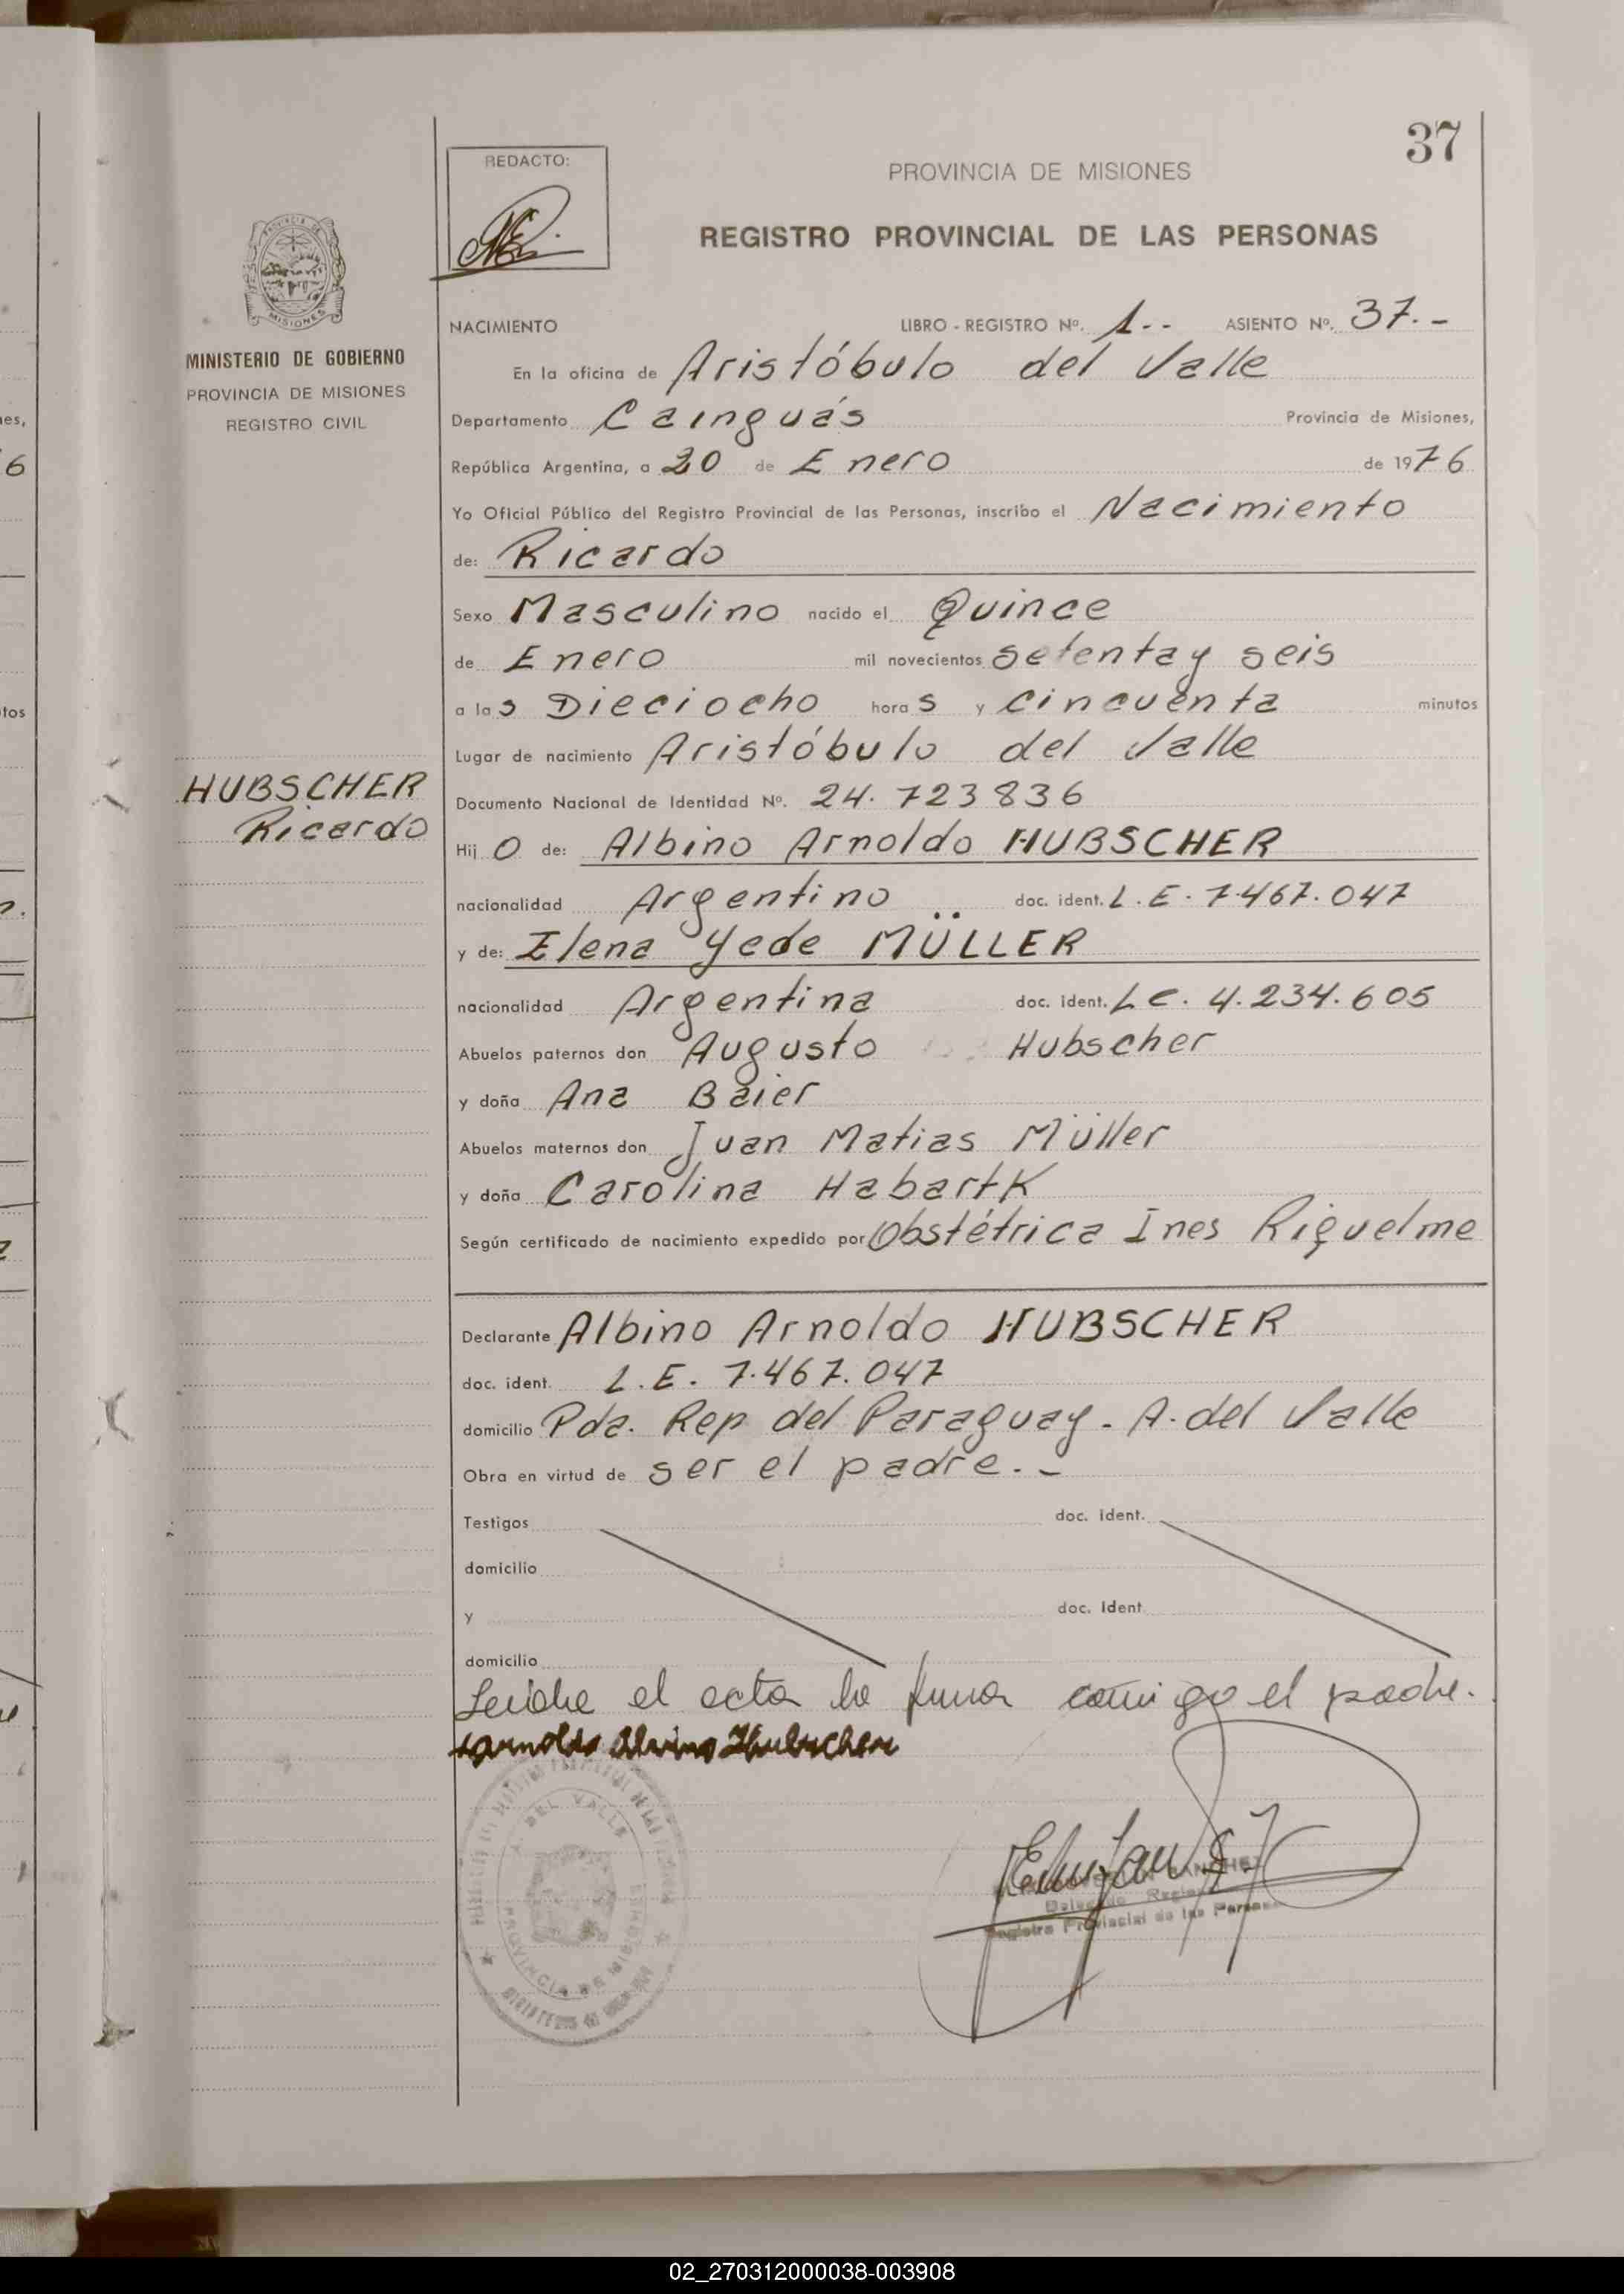 37
REDACTO:
PROVINCIA DE MISIONES
REGISTRO PROVINCIAL DE LAS PERSONAS
MISIONES
MINISTERIO DE GOBIERNO
PROVINCIA DE MISIONES
REGISTRO CIVIL
NACIMIENTO LIBRO - REGISTRO Nº. 1.- - ASIENTO Nº. 37.-
En la oficina de Aristóbulo del Valle
Departamento Cainguás Provincia de Misiones,
República Argentina, a 20 de Enero de 1976
Yo Oficial Público del Registro Provincial de las Personas, inscribo el Nacimiento
de: Ricardo
Sexo Masculino nacido el Quince
de Enero mil novecientos setenta y seis
a las Dieciocho horas y cincuenta minutos
Lugar de nacimiento Aristóbulo del Valle
HUBSCHER
Ricardo
Documento Nacional de Identidad Nº. 24.723836
Hijo de: Albino Arnoldo HUBSCHER
nacionalidad Argentino doc. ident. L.E. 7.467.047
y de: Elena Yede MÜLLER
nacionalidad Argentina doc. ident. LC. 4.234.605
Abuelos paternos don Augusto Hubscher
y doña Ana Baier
Abuelos maternos don Juan Matias Müller
y doña Carolina Habartk
Según certificado de nacimiento expedido por Obstétrica Ines Riquelme
Declarante Albino Arnoldo HUBSCHER
doc. ident. L.E. 7.467.047
domicilio Pda. Rep del Paraguay - A. del Valle
Obra en virtud de ser el padre.-
Testigos doc. ident.
domicilio
y doc. ident
domicilio
Leida el acta la firma conmigo el padre.
Arnoldo Alvino Hubscher
DEL VALLE
PROVINCIA DE MISIONES
Registro Provincial de las Personas
02_270312000038-003908